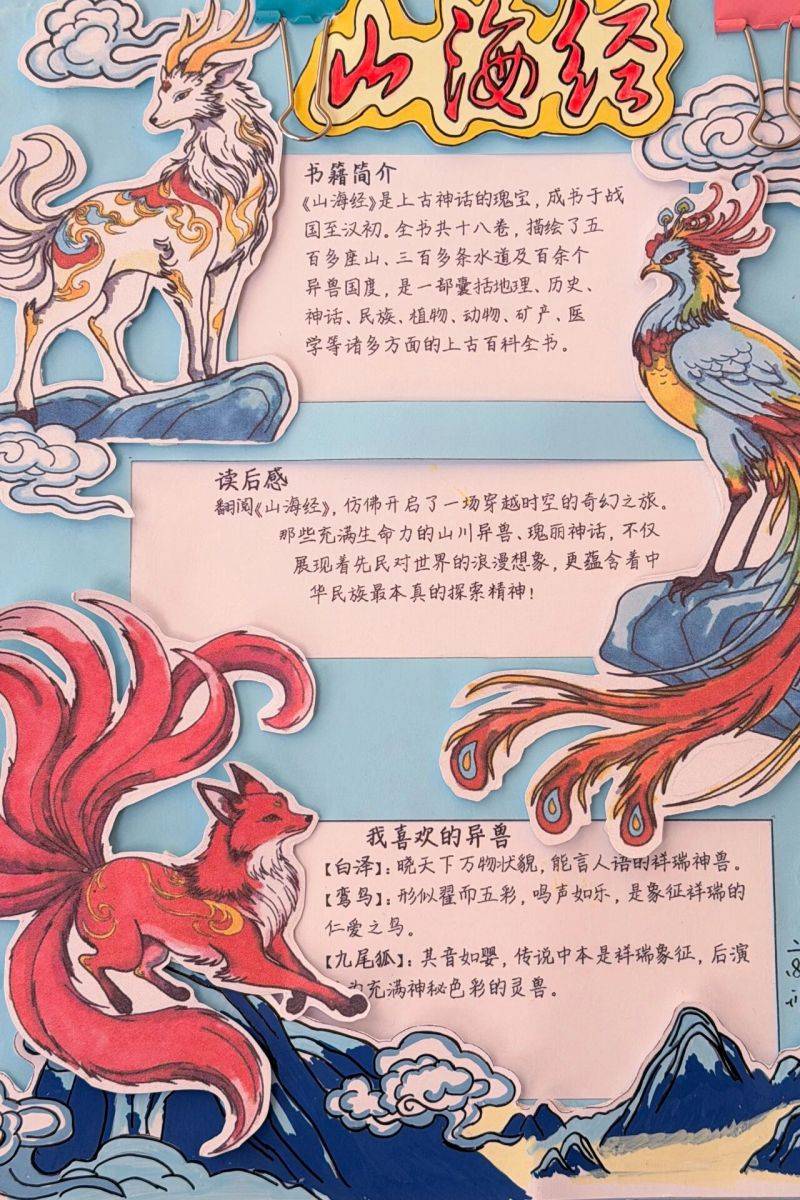 山海经
书籍简介
《山海经》是上古神话的瑰宝，成书于战
国至汉初。全书共十八卷，描绘了五
百多座山、三百多条水道及百余个
异兽国度，是一部囊括地理、历史、
神话、民族、植物、动物、矿产、医
学等诸多方面的上古百科全书。
读后感
翻阅《山海经》，仿佛开启了一场穿越时空的奇幻之旅。
那些充满生命力的山川异兽、瑰丽神话，不仅
展现着先民对世界的浪漫想象，更蕴含着中
华民族最本真的探索精神！
我喜欢的异兽
【白泽】：晓天下万物状貌，能言人语的祥瑞神兽。
【鸾鸟】：形似翟而五彩，鸣声如乐，是象征祥瑞的
仁爱之鸟。
【九尾狐】：其音如婴，传说中本是祥瑞象征，后演
充满神秘色彩的灵兽。